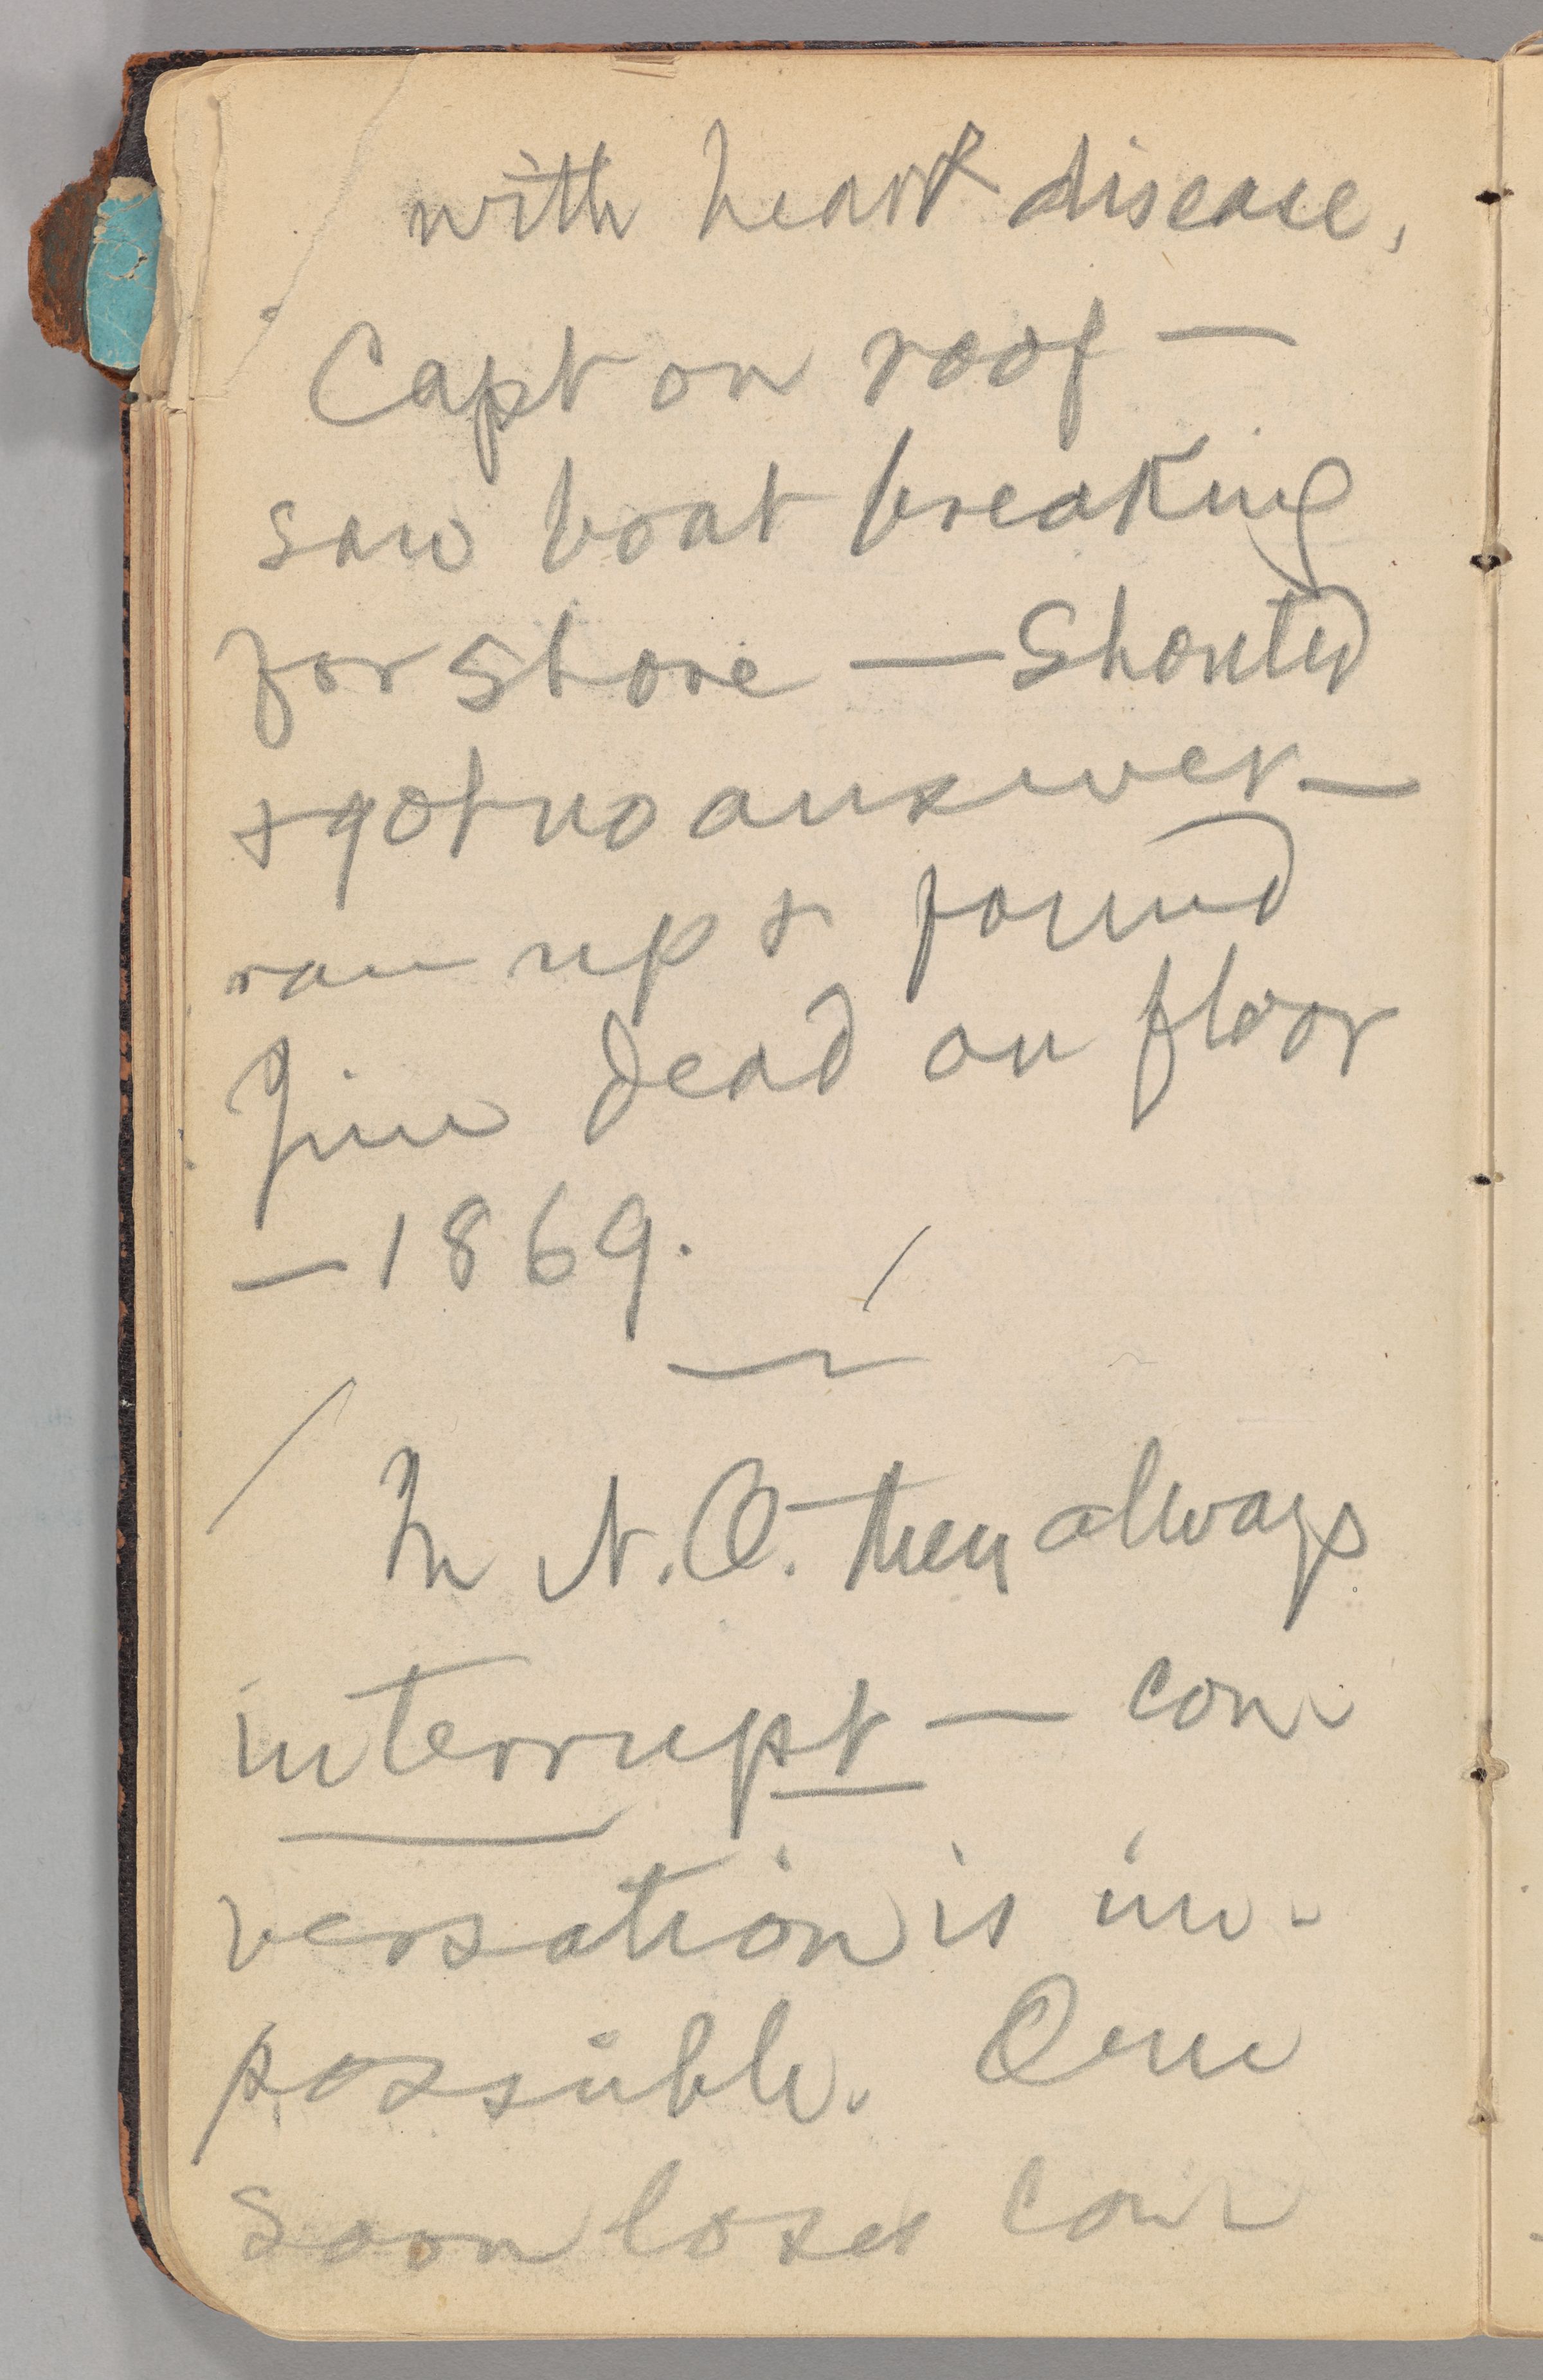 with heart disease,
Capt on roof —
saw boat breaking
for shore — Shouted
& got no answer —
ran up & found
Jim dead on floor
— 1869.
In N.O. they always
interrupt — con-
versation is im-
possible. One
soon loses con-